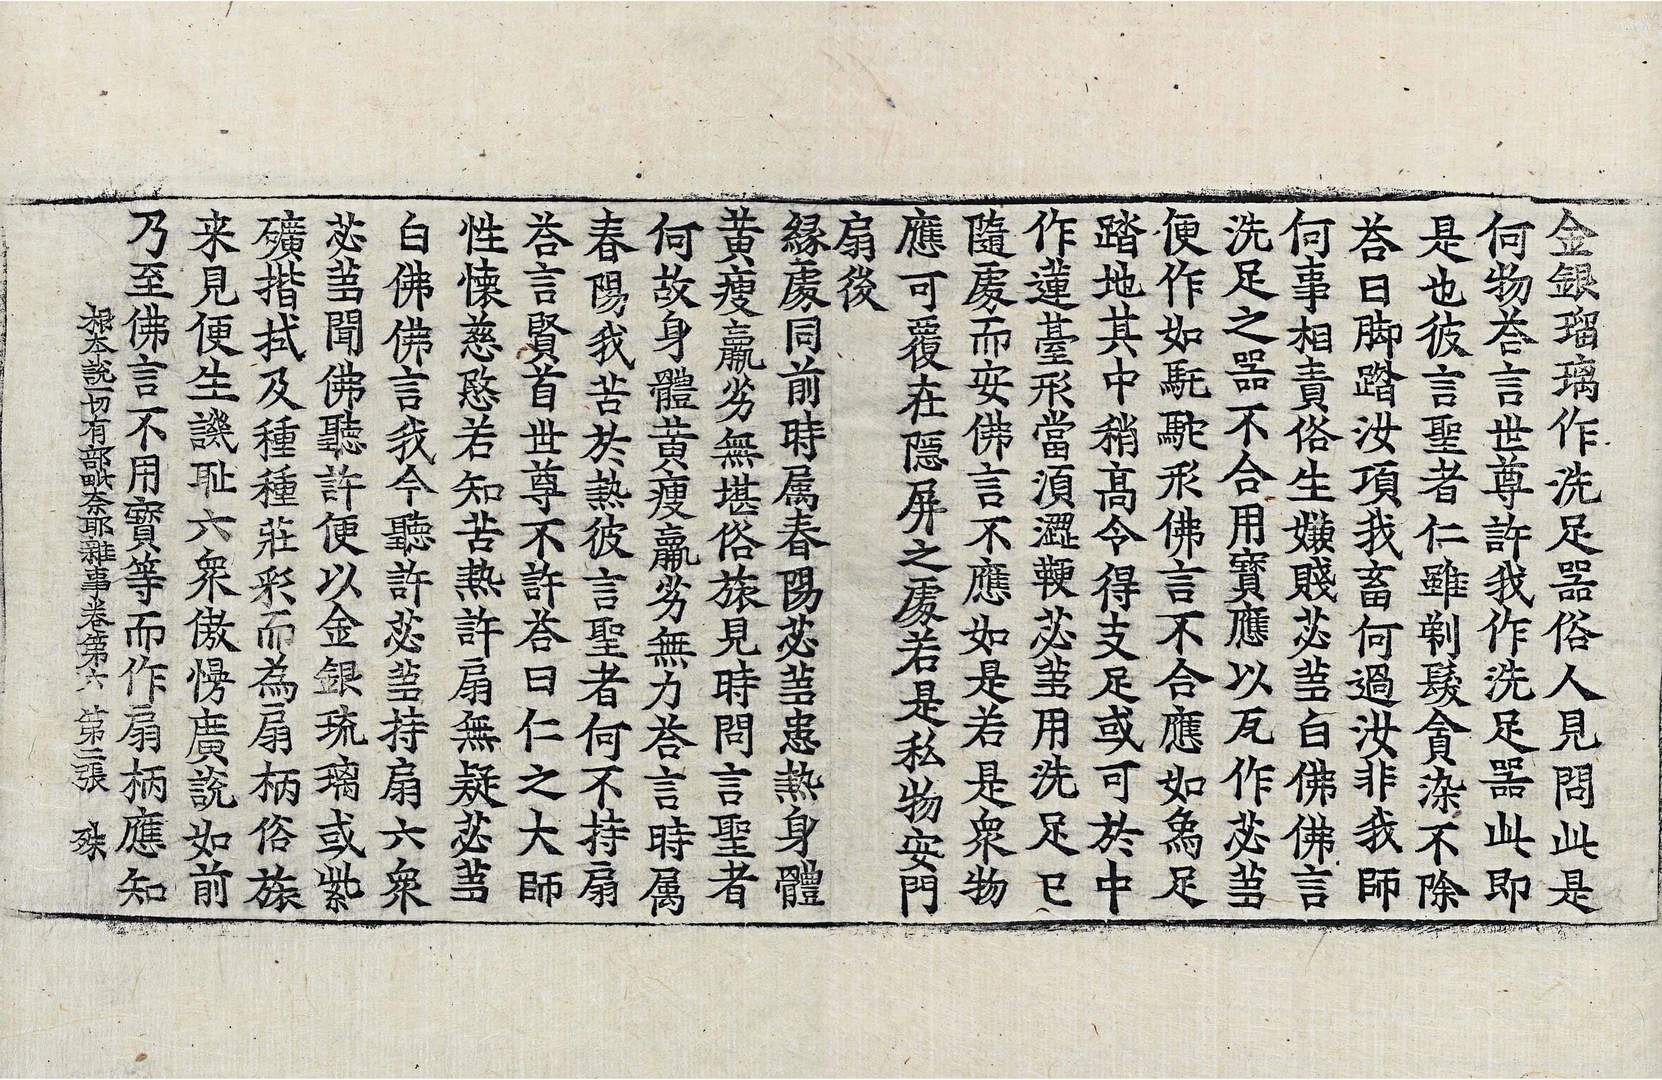 金銀瑠璃作洗足器俗人見問此是
何物荅言世尊許我作洗足器此即
是也彼言聖者仁雖剃髮貪染不除
荅曰脚踏汝項我畜何過汝非我師
何事相責俗生嫌賤苾芻白佛佛言
洗足之器不合用寶應以瓦作苾芻
便作如駝形佛言不合應如為足
踏地其中稍高令得支足或可於中
作蓮臺形當須澀鞕苾芻用洗足已
隨處而安佛言不應如是若是衆物
應可覆在隱屏之處若是私物安門
扇後
緣處同前時属春陽苾芻患熱身體
黄瘦羸劣無堪俗旅見時問言聖者
何故身體黄瘦羸劣無力荅言時属
春陽我苦於熱彼言聖者何不持扇
荅言賢首世尊不許荅曰仁之大師
性懷慈愍若知苦熱許扇無疑苾芻
白佛佛言我今聽許苾芻持扇六衆
苾芻聞佛聽許便以金銀琉璃或紫
礦揩拭及種種莊彩而為扇柄俗旅
来見便生譏耻六衆傲慢廣說如前
乃至佛言不用寶等而作扇柄應知
根本說一切有部毗奈耶雜事卷第六　第三張　殊